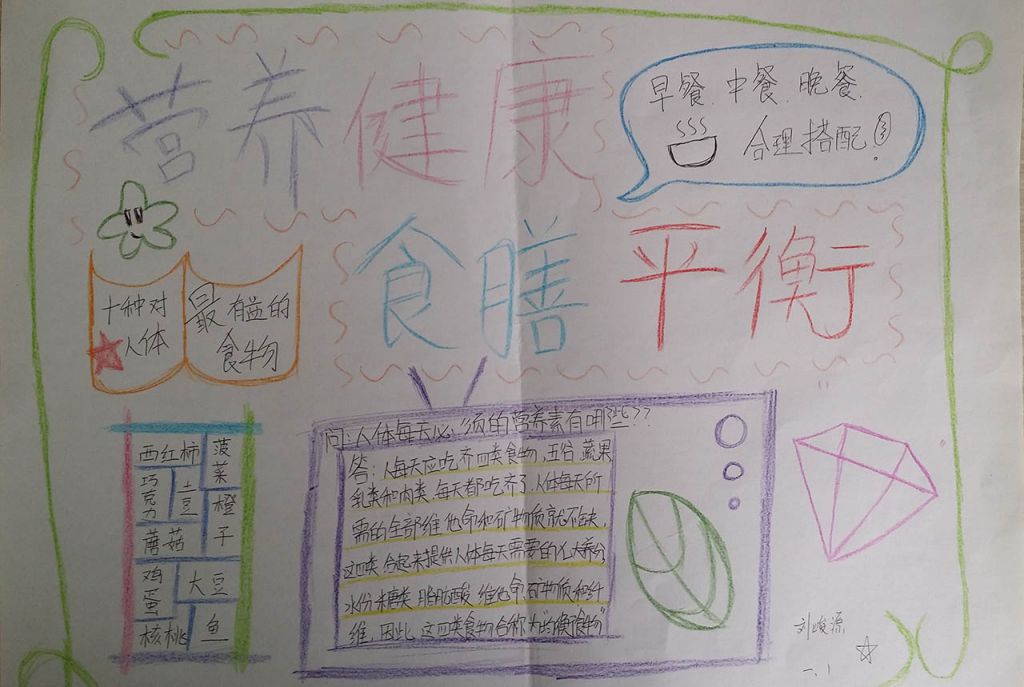 营养健康
早餐.中餐.晚餐.
合理搭配
食膳平衡
十种对
人体
最有益的
食物
西红柿
菠菜
巧克力
土豆
橙子
蘑菇
鸡蛋
大豆
核桃
鱼
问:人体每天必须的营养素有哪些??
答:人每天应吃齐四类食物,五谷 蔬果
乳类和肉类.每天都吃齐了.人体每天所
需的全部维他命和矿物质就不缺.
这四类合起来提供人体每天需要的八大养分
水份.糖类.脂肪酸.维他命.矿物质和纤
维.因此.这四类食物合称为"均衡食物"
刘峻源
一.1